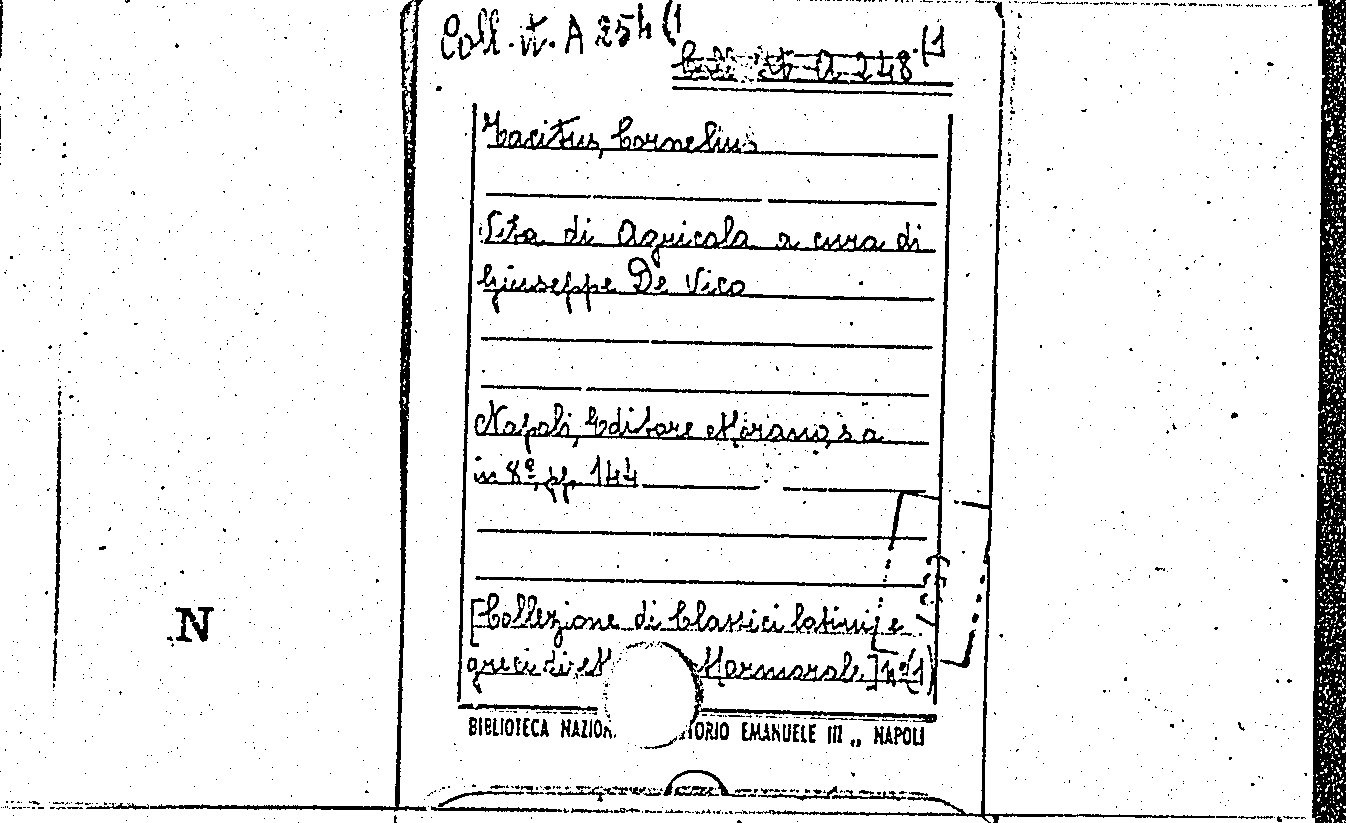 Coll. it. A 254 (1
Coll. it. A 248 (1
Tacitus, Cornelius
Vita di Agricola a cura di
Giuseppe De Vico
Napoli, Editore Morano, s a
in 8º, pp. 144
[Collezione di Classici latini e
greci di M Marmorale] nº(1)
BIBLIOTECA NAZION TORIO EMANUELE III „ NAPOLI
N